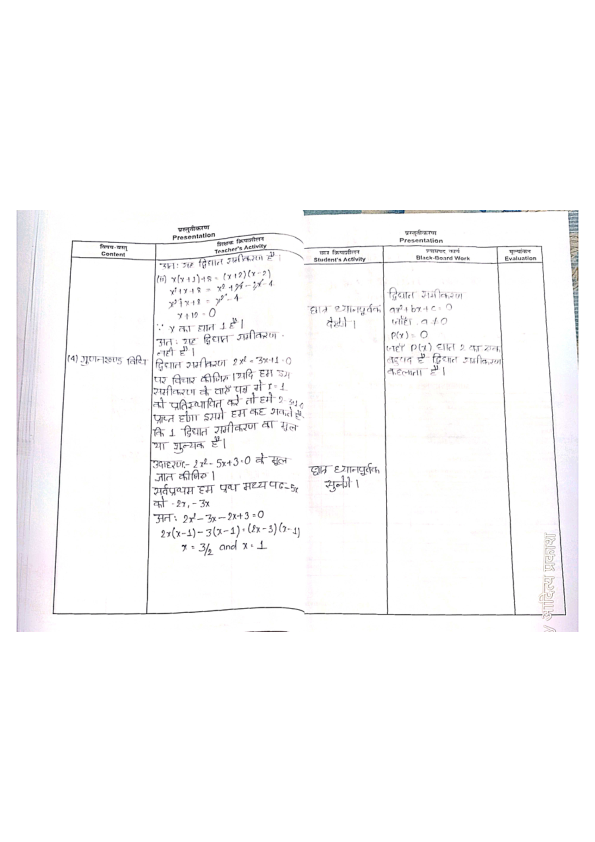 प्रस्तुतीकरण
Presentation
विषय-वस्तु
Content
शिक्षक क्रियाशीलन
Teacher's Activity
अतः यह द्विघात समीकरण है।
x(x+1)+8 = (x+2)(x-2)
x²+x+8 = x²+2x-2x-4
x²+x+8 = x²-4
x+12=0
∵ x का घात 1 है।
अतः यह द्विघात समीकरण
नहीं है।
(4) गुणनखण्ड विधि
द्विघात समीकरण 2x²-3x+1=0
पर विचार कीजिए। यदि हम इस
समीकरण के बाएँ पक्ष से x=1
को प्रतिस्थापित करे तो हमें
प्राप्त होगा इससे हम कह सकते है
कि 1 द्विघात समीकरण का मूल
या शून्यक है।
उदाहरण:- 2x²-5x+3=0 के मूल
ज्ञात कीजिए।
सर्वप्रथम हम मध्य पद -5x
को -2x, -3x
अतः 2x²-3x-2x+3=0
2x(x-1)-3(x-1)=(2x-3)(x-1)
x = 3/2 and x=1
प्रस्तुतीकरण
Presentation
छात्र क्रियाशीलन
Student's Activity
श्यामपट्ट कार्य
Black-Board Work
मूल्यांकन
Evaluation
छात्र ध्यानपूर्वक
देखेंगे।
द्विघात समीकरण
ax²+bx+c=0
जहाँ a≠0
P(x)=0
जहाँ P(x) घात 2 का एक
बहुपद है द्विघात समीकरण
कहलाता है।
छात्र ध्यानपूर्वक
सुनेंगे।